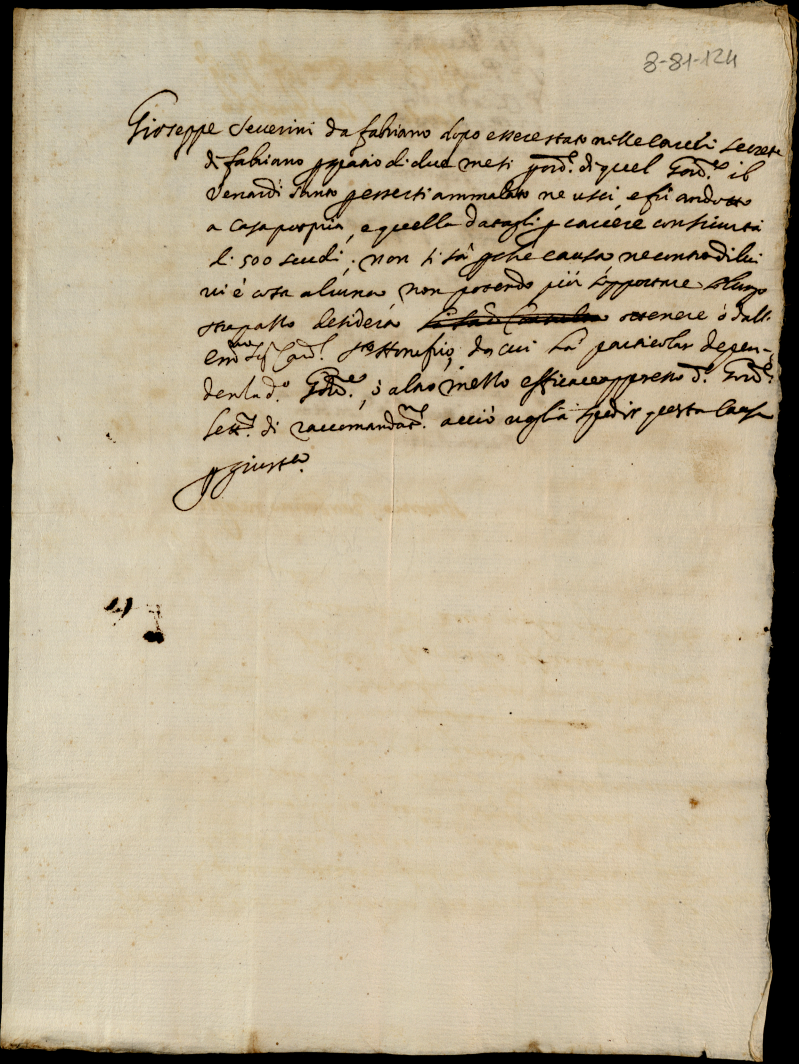 8-81-124
Gioseppe Severini da fabriano dopo essere stato nelle carceri secrete
di fabiano p spatio di due mesi p ord.e di quel Gov.re il
Venardi Santo p essersi ammalato ne uscì, e fù condotto
a casa propria, e quella datagli p carcere con sicurtà
di 500 scudi, non si sà p che causa, ne contro di lui
vi è cosa alcuna, non potendo più sopportare
strapasso desidera ottenere ò dall
em.mo Sig.r Card.l S.to Honofrio, da cui hà particolar depen-
denza d.o Gov.re, ò altro mezzo efficace appresso d.o Gov.re
lett.a di raccomandat.ne acciò voglia spedir questa causa
p giustitia